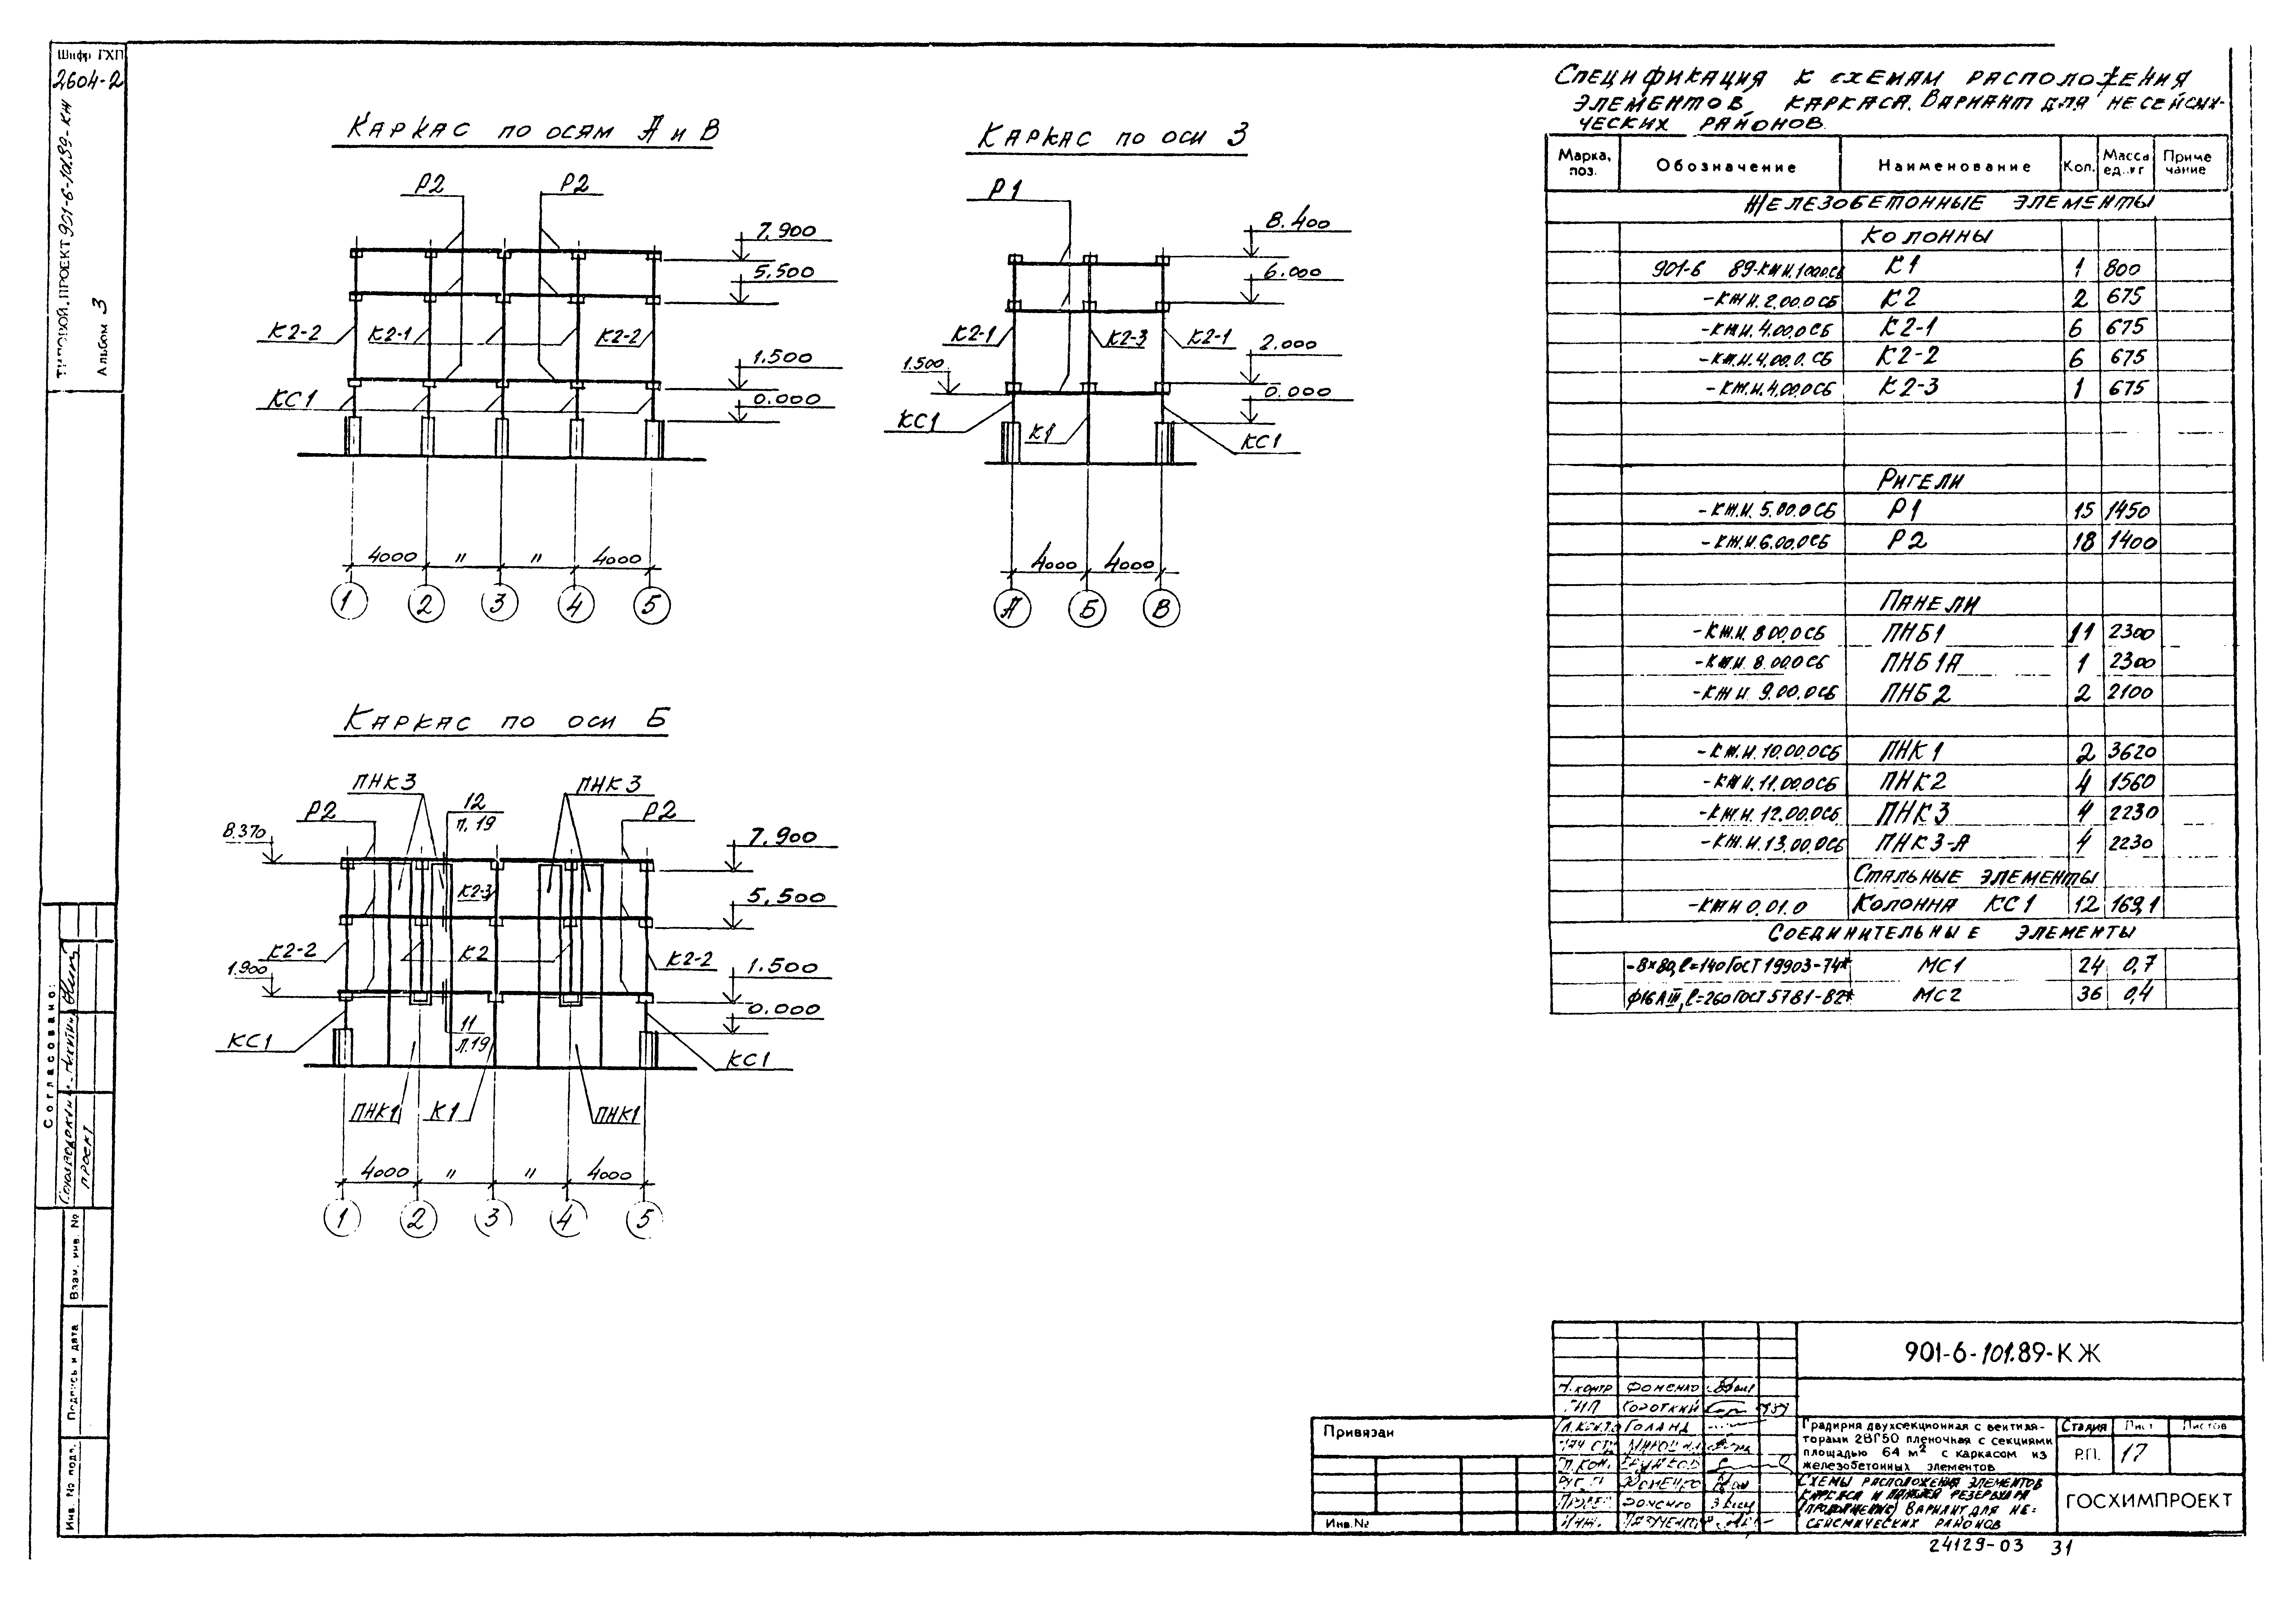 Шифр ГХП
2604-2
ТИПОВОЙ ПРОЕКТ 901-6-101.89-КЖ
Альбом 3
Каркас по осям А и В
Р2 Р2
7.900
5.500
К2-2 К2-1 К2-2
1.500
КС1 0.000
4000 " " 4000
1 2 3 4 5
Каркас по оси 3
Р1
8.400
6.000
К2-1 К2-3 К2-1
2.000
1.500
0.000
КС1 К1 КС1
4000 4000
А Б В
Каркас по оси Б
ПНК3 12 ПНК3
Р2 П.19 Р2
8.370 7.900
К2-3
5.500
К2-2 К2 К2-2
1.900 1.500
0.000
11
Л.19
КС1 КС1
ПНК1 К1 ПНК1
4000 " " 4000
1 2 3 4 5
Спецификация к схемам расположения
элементов каркаса. Вариант для несейсми-
ческих районов.
Марка, поз. Обозначение Наименование Кол. Масса ед. кг Приме чание
Железобетонные элементы
Колонны
901-6 89-КЖИ.1.00.0СБ К1 1 800
-КЖИ.2.00.0СБ К2 2 675
-КЖИ.4.00.0СБ К2-1 6 675
-КЖИ.4.00.0.СБ К2-2 6 675
-КЖИ.4.00.0СБ К2-3 1 675
Ригели
-КЖИ.5.00.0СБ Р1 15 1450
-КЖИ.6.00.0СБ Р2 18 1400
Панели
-КЖИ.8.00.0СБ ПНБ1 11 2300
-КЖИ.8.00.0СБ ПНБ1А 1 2300
-КЖИ.9.00.0СБ ПНБ2 2 2100
-КЖИ.10.00.0СБ ПНК1 2 3620
-КЖИ.11.00.0СБ ПНК2 4 1560
-КЖИ.12.00.0СБ ПНК3 4 2230
-КЖИ.13.00.0СБ ПНК3-А 4 2230
Стальные элементы
-КЖИ 0.01.0 Колонна КС1 12 169,1
Соединительные элементы
-8×80, ℓ=140 ГОСТ 19903-74* МС1 24 0,7
ф16АIII, ℓ=260 ГОСТ 5781-82* МС2 36 0,4
Согласовано:
Союзводоканал-
проект
Взам. инв. №
Подпись и дата
Инв. № подл.
Привязан
Инв.№
901-6-101.89-КЖ
Н.контр Фоменко
ГИП Короткий
Голанд
Фоменко
Фоменко
Инж.
Градирня двухсекционная с вентиля-
торами 2ВГ50 пленочная с секциями
площадью 64 м² с каркасом из
железобетонных элементов
Стадия Лист Листов
Р.П. 17
Схемы расположения элементов
каркаса и панелей резервуара
(продолжение) Вариант для не-
сейсмических районов
ГОСХИМПРОЕКТ
24129-03 31